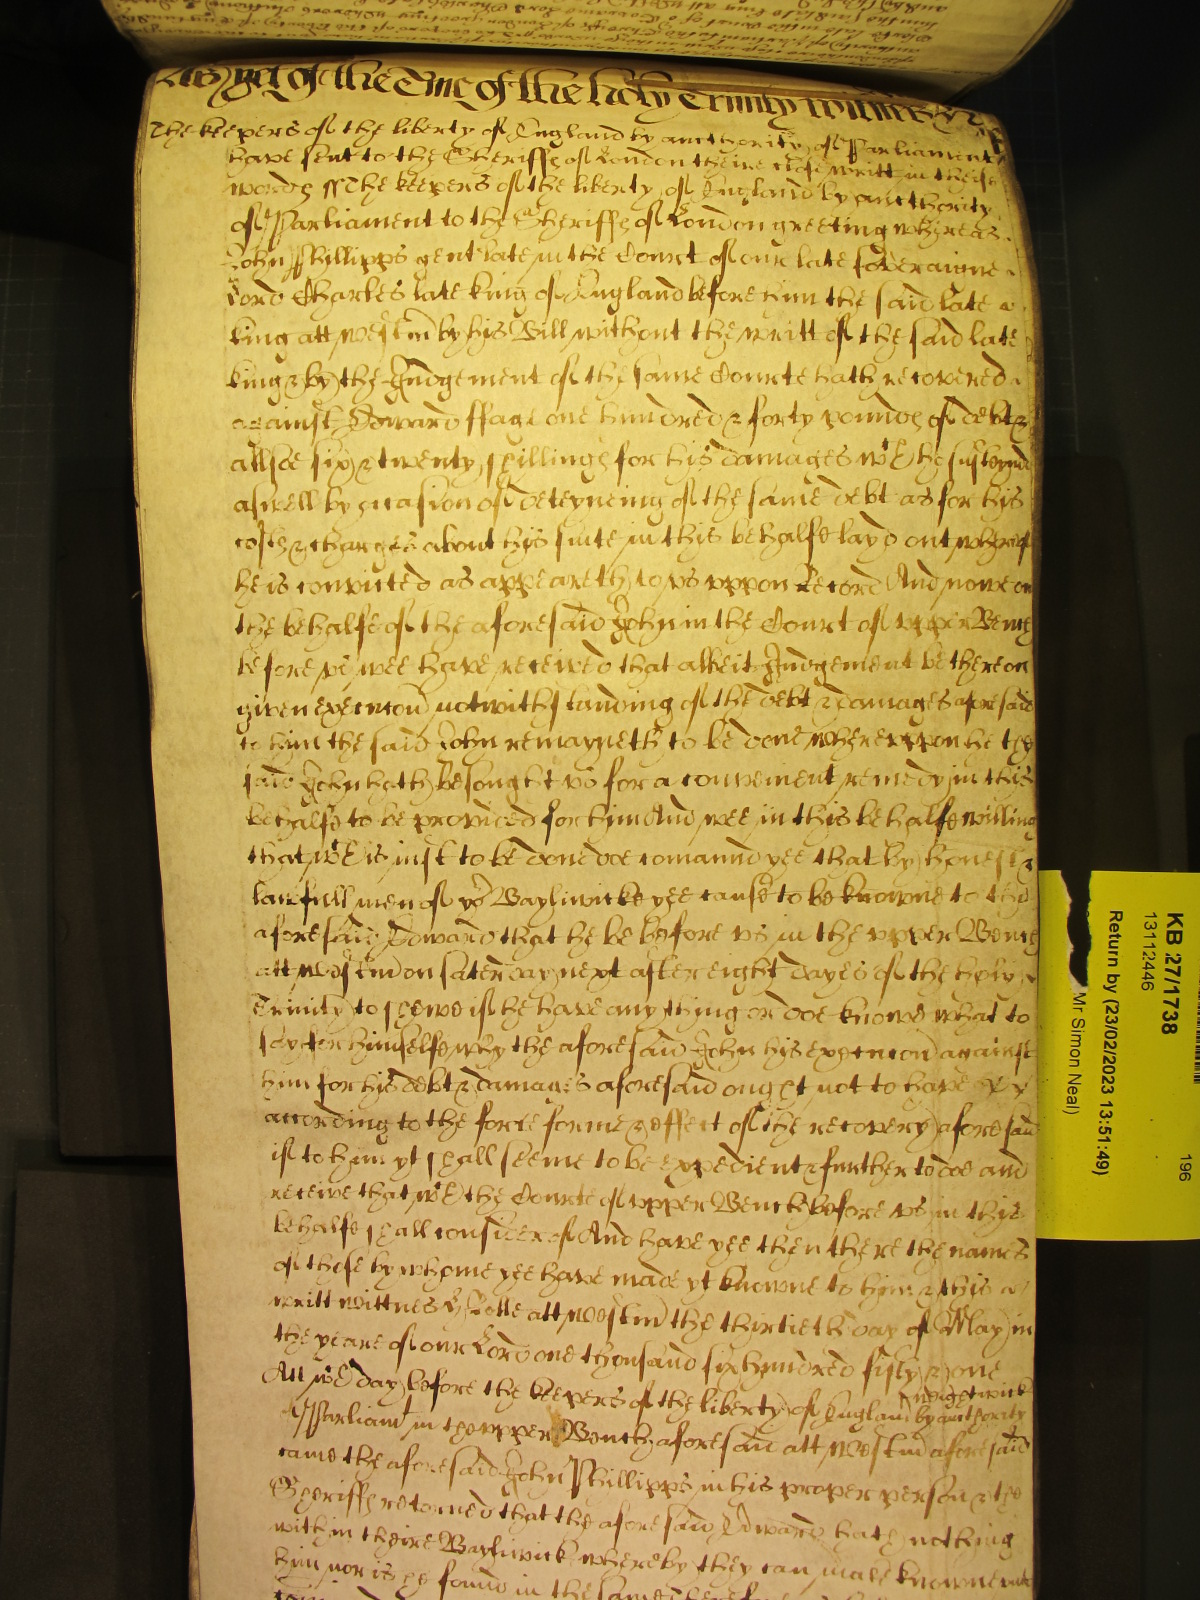 As yet of the Time of the holy Trinity
The keepers of the liberty of England by aucthority of Parliament
have sent to the Sheriffe of London theire close writt in theise
words ss The keepers of the liberty of England by aucthority
of Parliament to the Sheriffe of London greeting whereas
John Phillipps gent late in the Court of our late soveraigne
Lord Charles late king of England before him the said late
king att Westm by his Bill without the writt of the said late
king & by the Judgement of the same Courte hath recovered
against Edward ffage one hundred & forty pounds of debt &
allsoe six & twenty shillings for his damages wch he susteyned
aswell by occasion of deteyneing of the same debt as for his
costs & charges about his suite in this behalfe layd out whereof
he is convicted as appeareth to us uppon Record And nowe on
the behalfe of the aforesaid John in the Court of upper Bench
before us wee have received that albeit Judgement be thereon
given execucon notwithstanding of the debt & damages aforesaid
to him the said John remayneth to be done whereuppon he the
said John hath besought us for a convenient remedy in this
behalfe to be provided for him And wee in this behalfe willing
that wch is just to be done doe comannd yee that by honest &
lawfull men of yor Bayliwicke yee cause to be knowne to the
aforesaid Edward that he be before us in the upper Bench
att Westm on saterday next after eight dayes of the holy
Trinity to shewe if he have any thing or doe knowe what to
say for himselfe why the aforesaid John his execucon against
him for his debt & damages aforesaid ought not to have
according to the force forme & effect of the recovery aforesaid
if to him yt shall seeme to be expedient & further to doe and
receive that wch the Courte of upper Bench before us in this
behalfe shall consider of And have yee then there the names
of those by whome yee have made yt knowne to him & this
writt wittnes H Rolle att Westm the thirtieth day of May in
the yeare of our Lord one thousand six hundred fifty & one
Att wch day before the keepers of the liberty of England by aucthority
Parliamt in the upper Bench aforesaid att Westm aforesaid
came the aforesaid John Phillipps in his proper person & the
Sheriffe retorned that the aforesaid Edward hath nothing
within theire Bayliwick whereby they can make knowne unto
him nor is he found in the same Therefore
KB 27/1738
13112446
Return by (23/02/2023 13:51:49)
Mr Simon Neal)
196